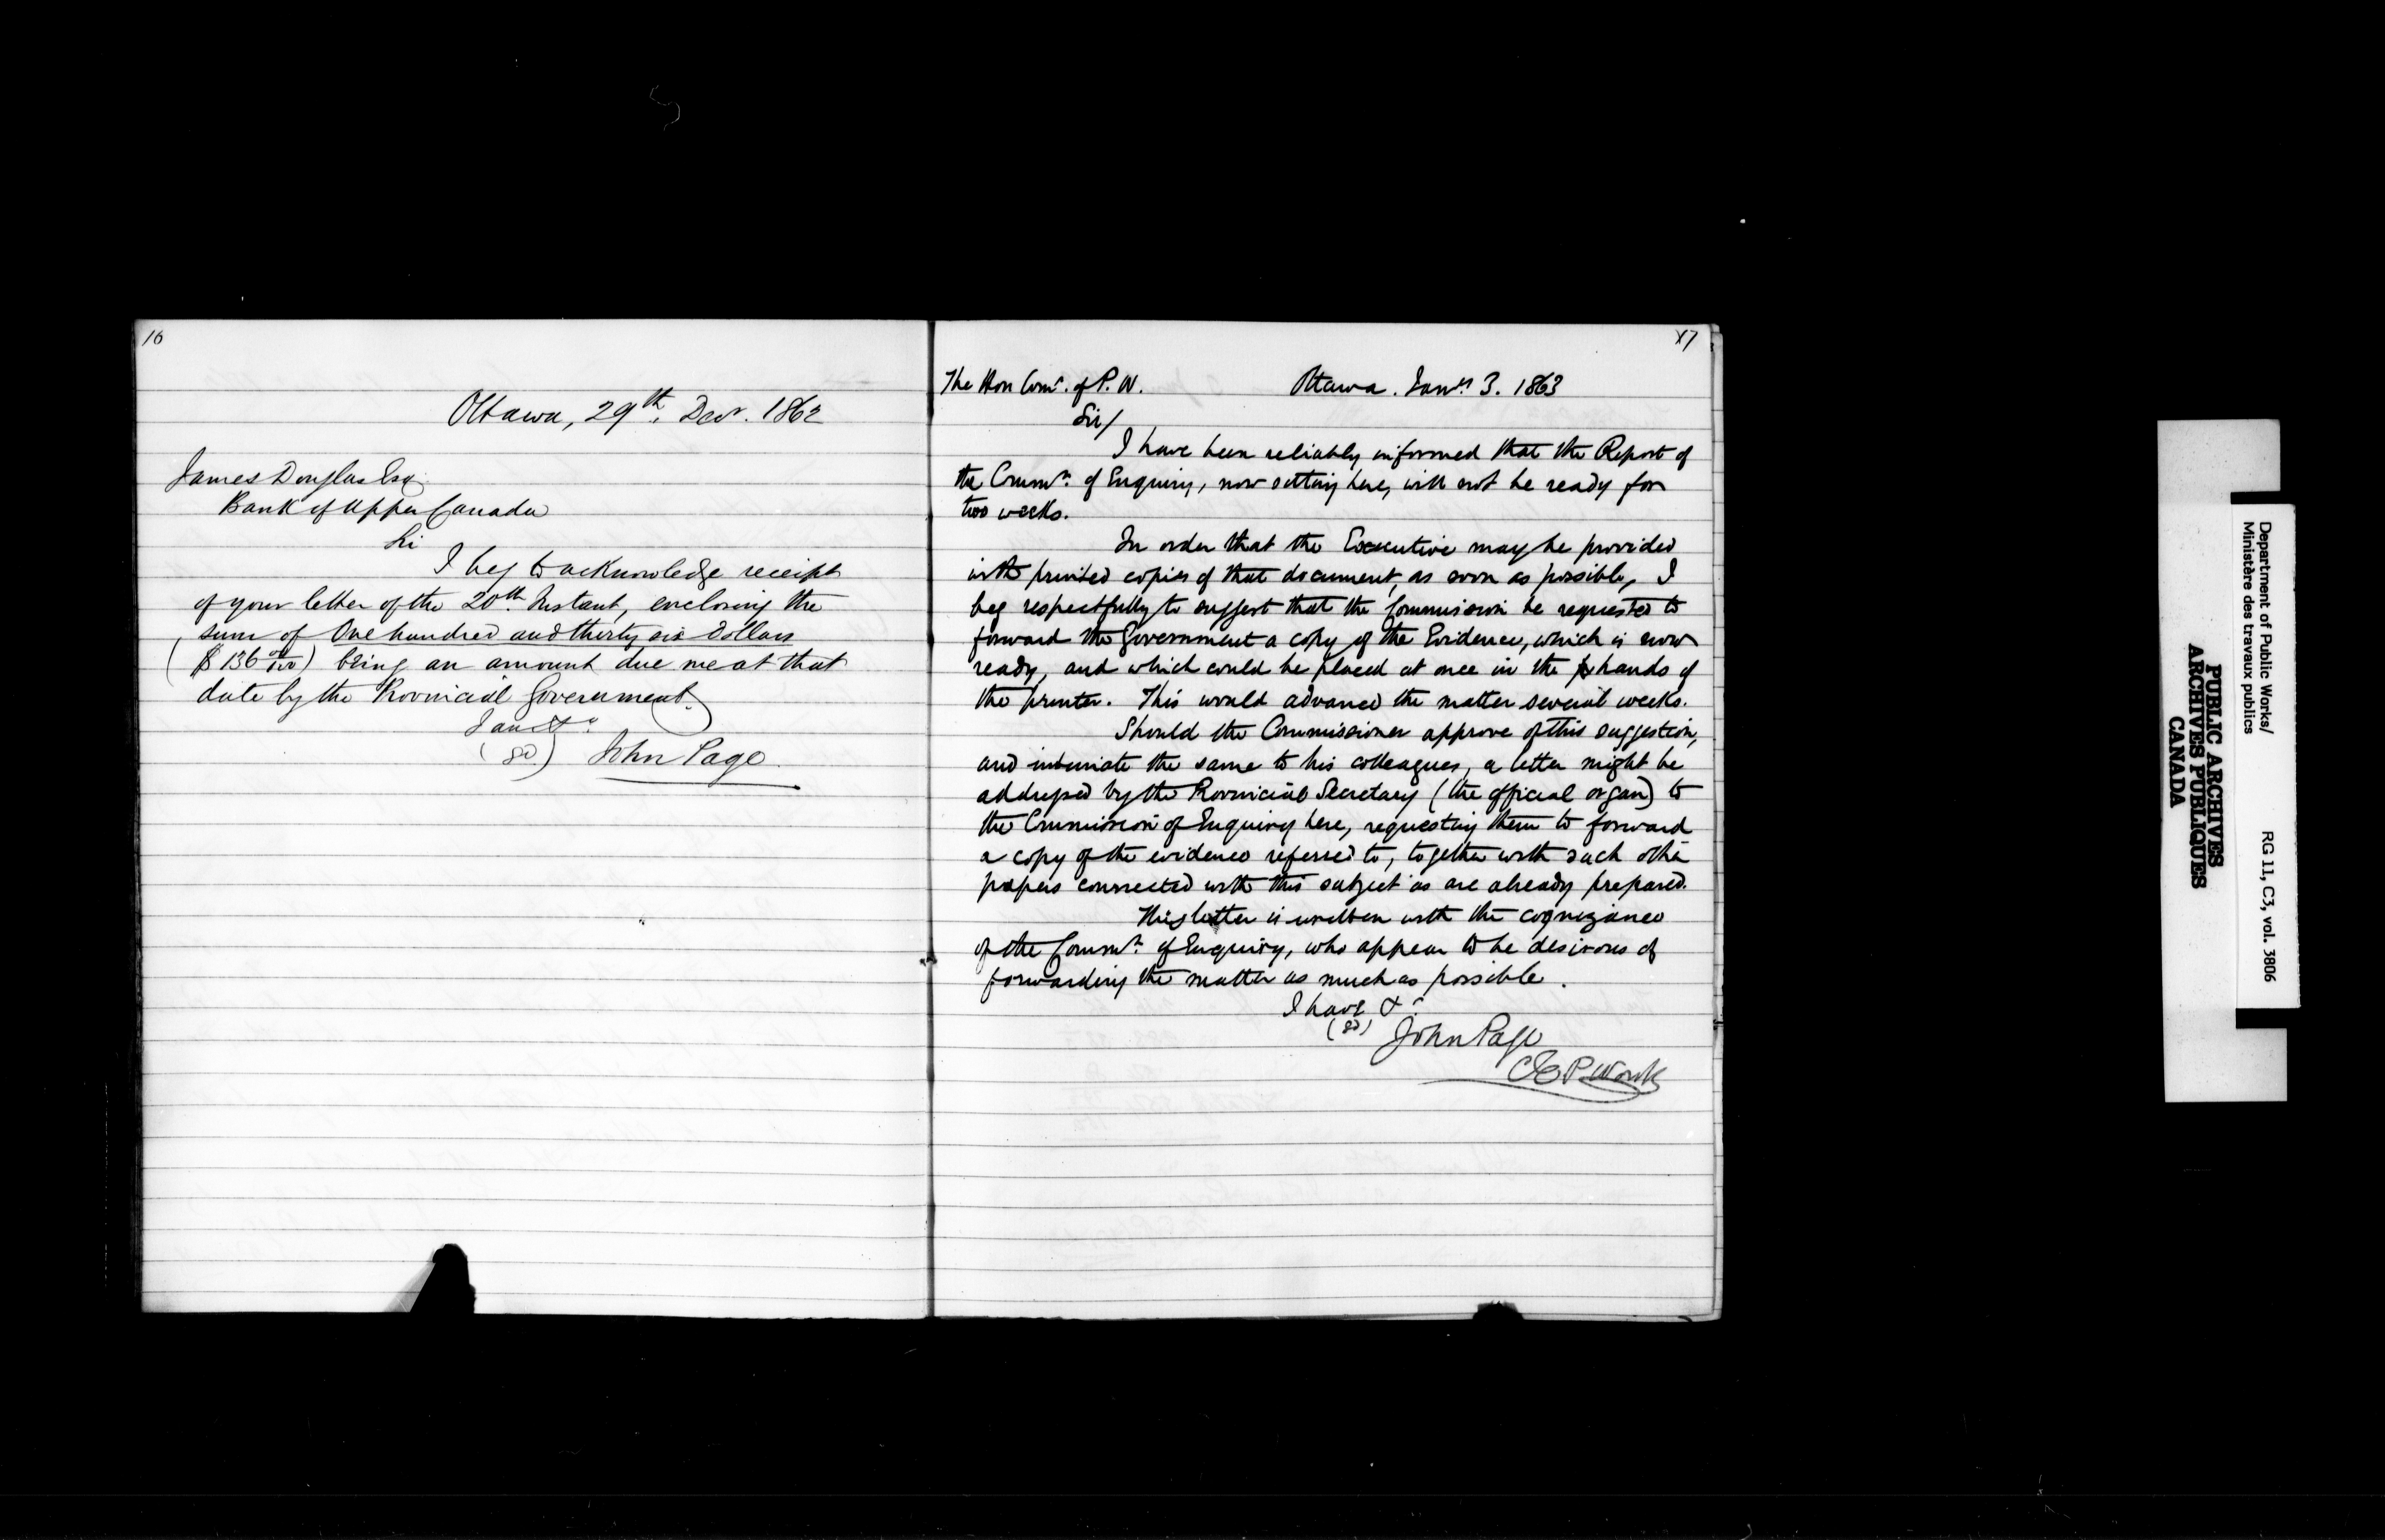 16
Ottawa, 29th. Decr. 1862
James Douglas Esq
Bank of Upper Canada
Sir
I beg to acknowledge receipt
of your letter of the 20th. Instant, enclosing the
sum of One hundred and thirty six Dollars
($136 00/100) being an amount due me at that
date by the Provincial Government.
I am &c
(sd) John Page.
17
The Hon Comr. of P. W. Ottawa. Jany. 3. 1863
Sir/
I have been reliably informed that the Report of
the Commn. of Enquiry, now sitting here, will not be ready for
two weeks.
In order that the Executive may be provided
with printed copies of that document, as soon as possible, I
beg respectfully to suggest that the Commission be requested to
forward the Government a copy of the Evidence, which is now
ready, and which could be placed at once in the hands of
the printer. This would advance the matter several weeks.
Should the Commissioner approve of this suggestion,
and intimate the same to his colleagues, a letter might be
addressed by the Provincial Secretary (the official organ) to
the Commission of Enquiry here, requesting them to forward
a copy of the evidence referred to, together with such other
papers connected with this subject as are already prepared.
This letter is written with the cognizance
of the Commn. of Enquiry, who appear to be desirous of
forwarding the matter as much as possible.
I have &c
(sd) John Page
C E P. Works
Department of Public Works/
Ministère des travaux publics
RG 11, C3, vol. 3806
PUBLIC ARCHIVES
ARCHIVES PUBLIQUES
CANADA